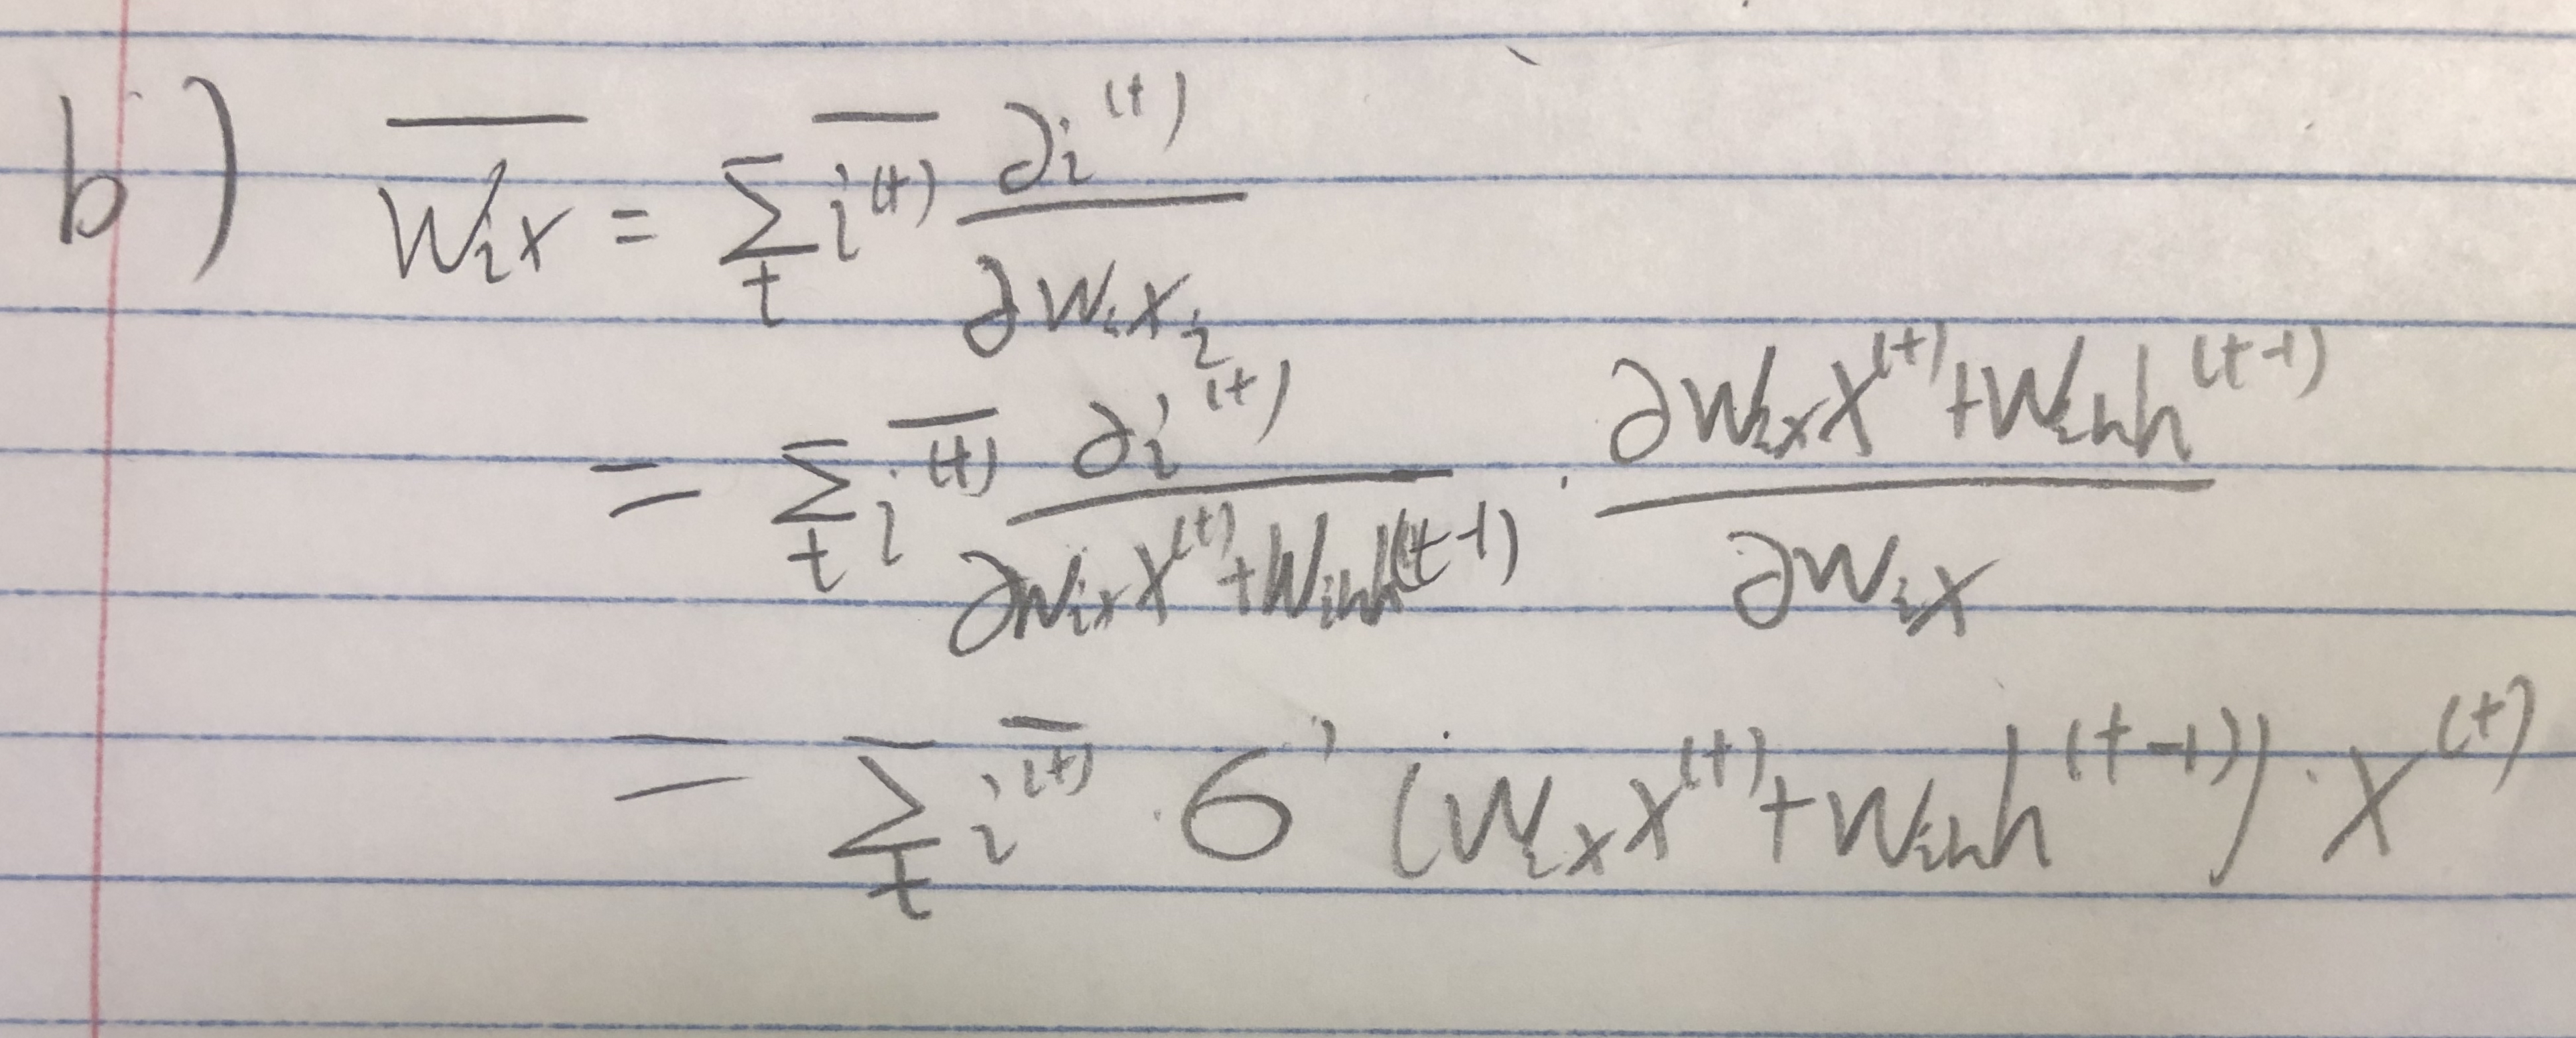 b) \overline{W_{ix}} = \sum_t \overline{i^{(t)}} \frac{\partial i^{(t)}}{\partial W_{ix_i}}
= \sum_t \overline{i^{(t)}} \frac{\partial i^{(t)}}{\partial W_{ix} x^{(t)} + W_{ih} h^{(t-1)}} \cdot \frac{\partial W_{ix} x^{(t)} + W_{ih} h^{(t-1)}}{\partial W_{ix}}
= \sum_t \overline{i^{(t)}} \cdot \sigma' (W_{ix} x^{(t)} + W_{ih} h^{(t-1)}) \cdot x^{(t)}